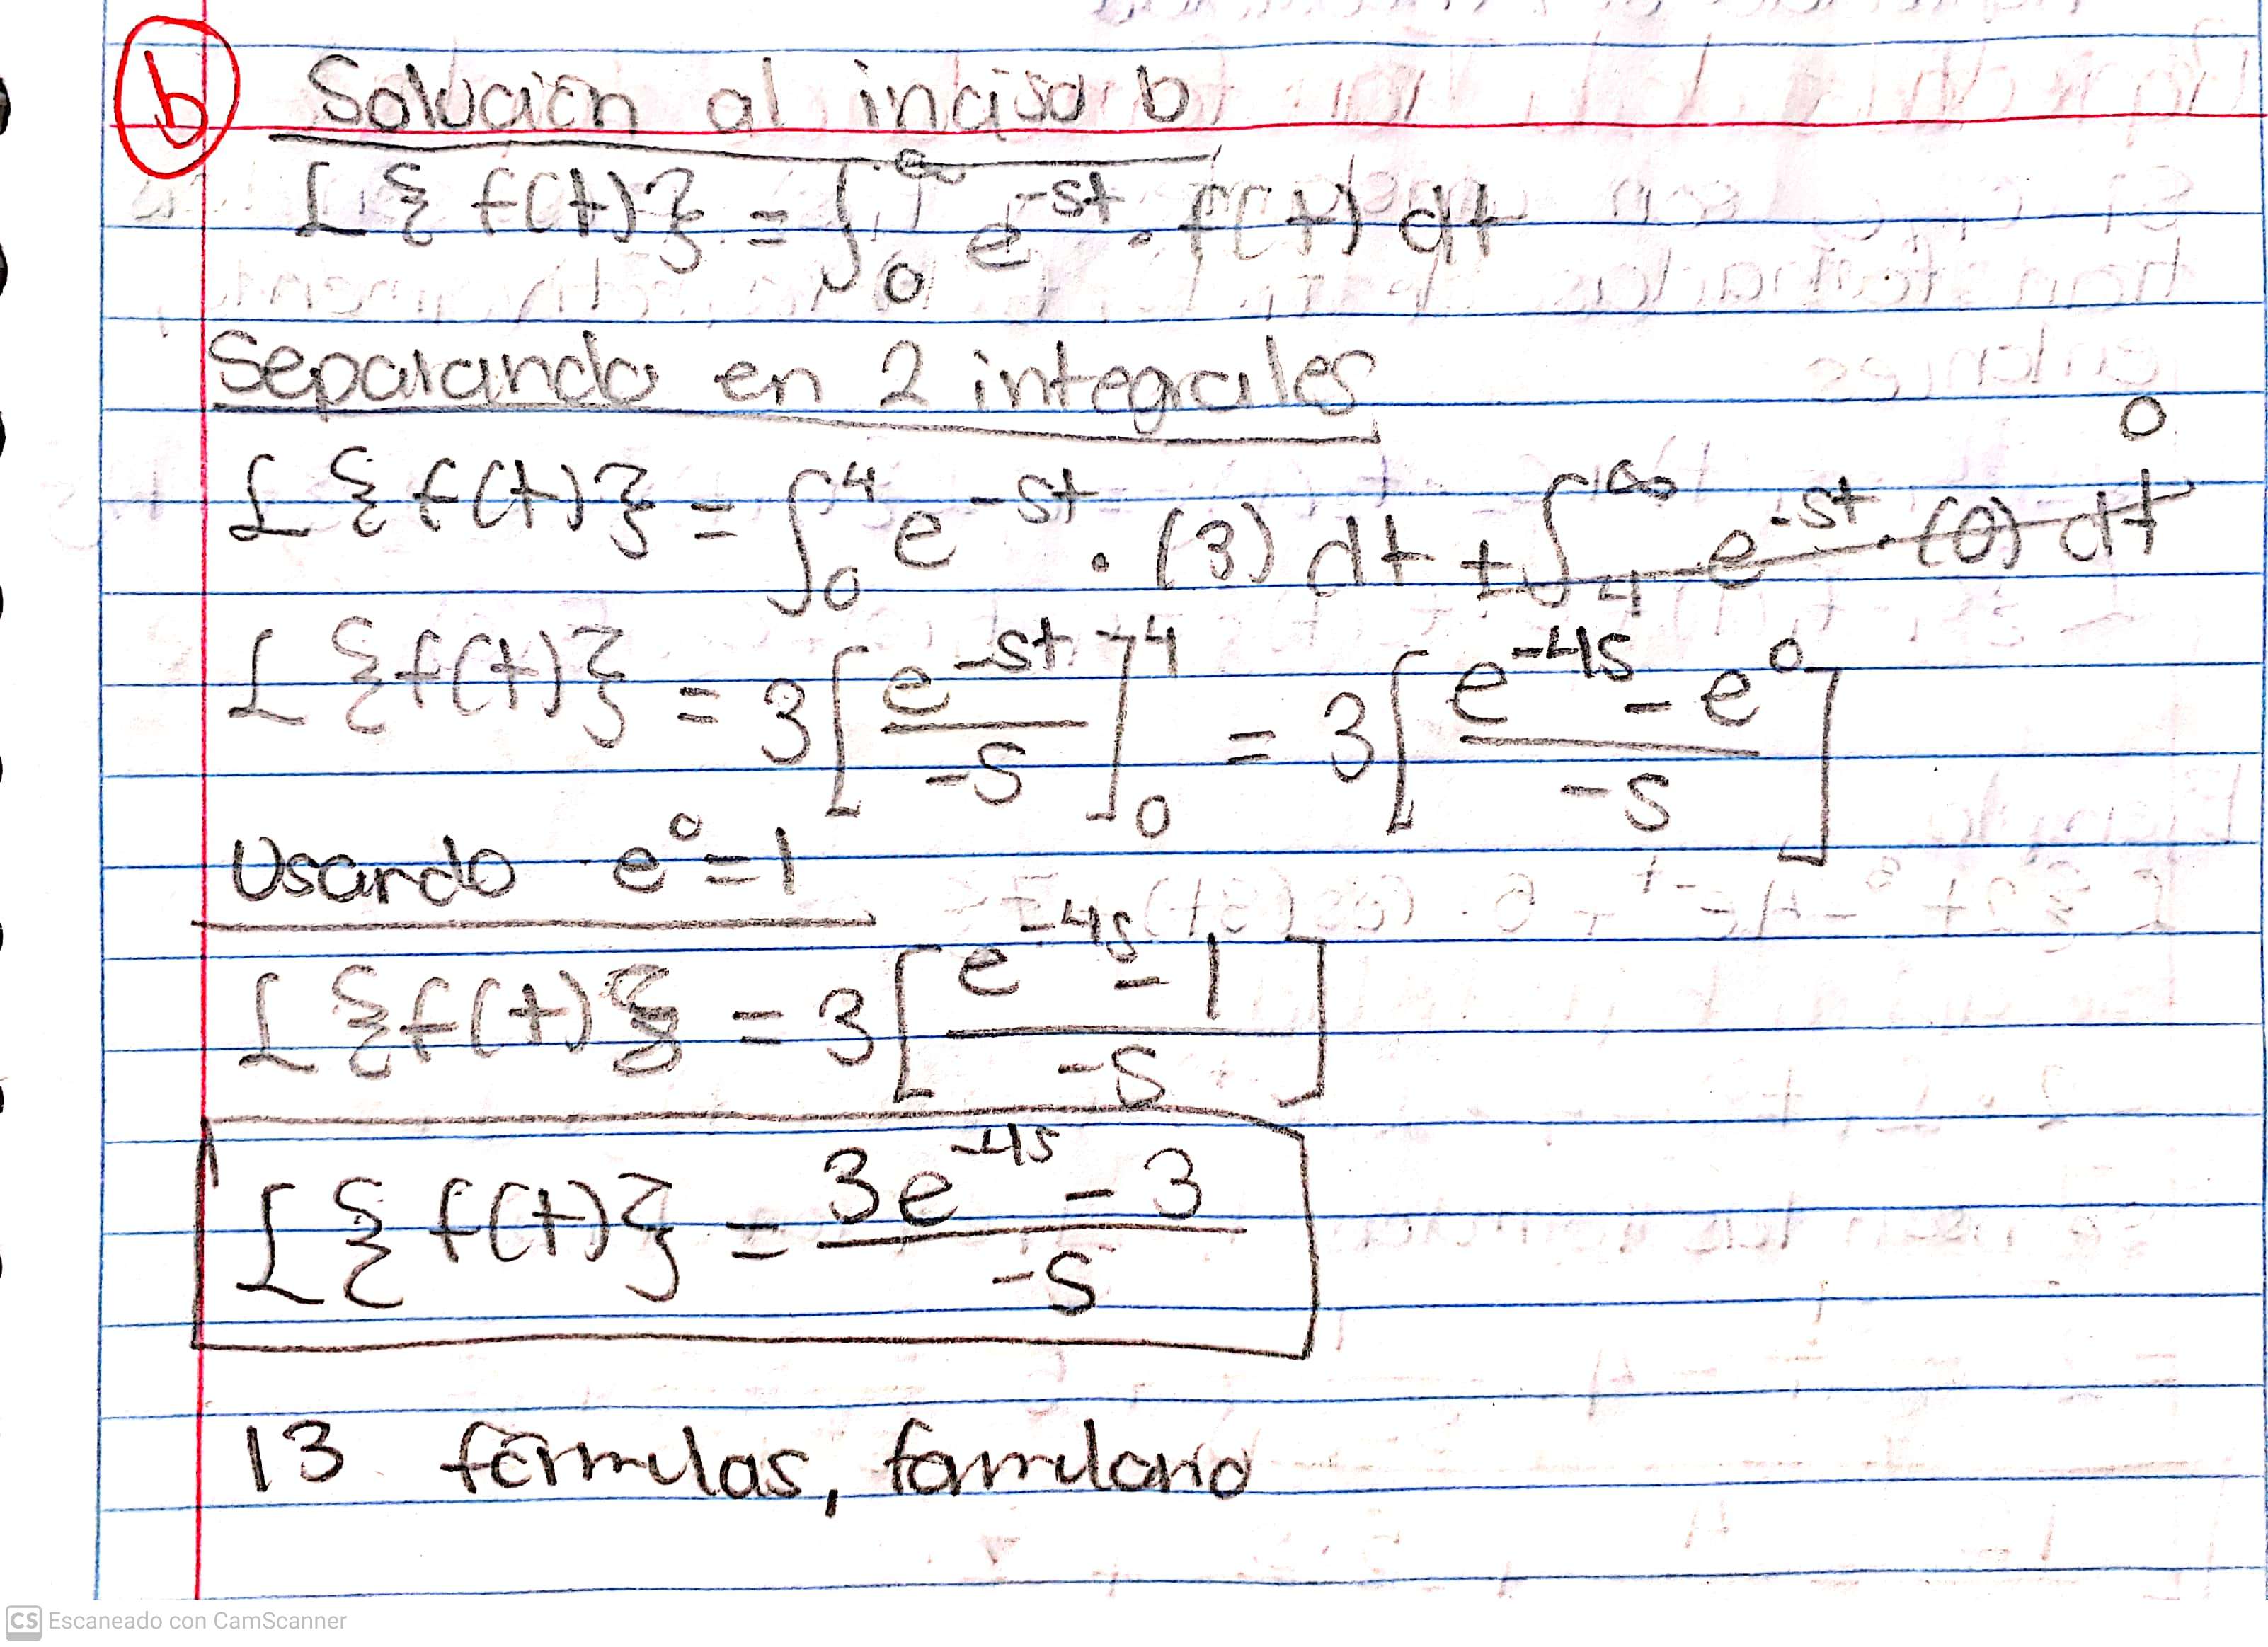 b Solución al inciso b
L{f(t)} = ∫₀^∞ e^-st · f(t) dt
Separando en 2 integrales
L{f(t)} = ∫₀⁴ e^-st · (3) dt + ∫₄^∞ e^-st · (0) dt 0
L{f(t)} = 3[e^-st / -s]₀⁴ = 3[e^-4s - e^0 / -s]
Usando e^0 = 1
L{f(t)} = 3[e^-4s - 1 / -s]
L{f(t)} = 3e^-4s - 3 / -s
13 fórmulas, formulario
CS Escaneado con CamScanner